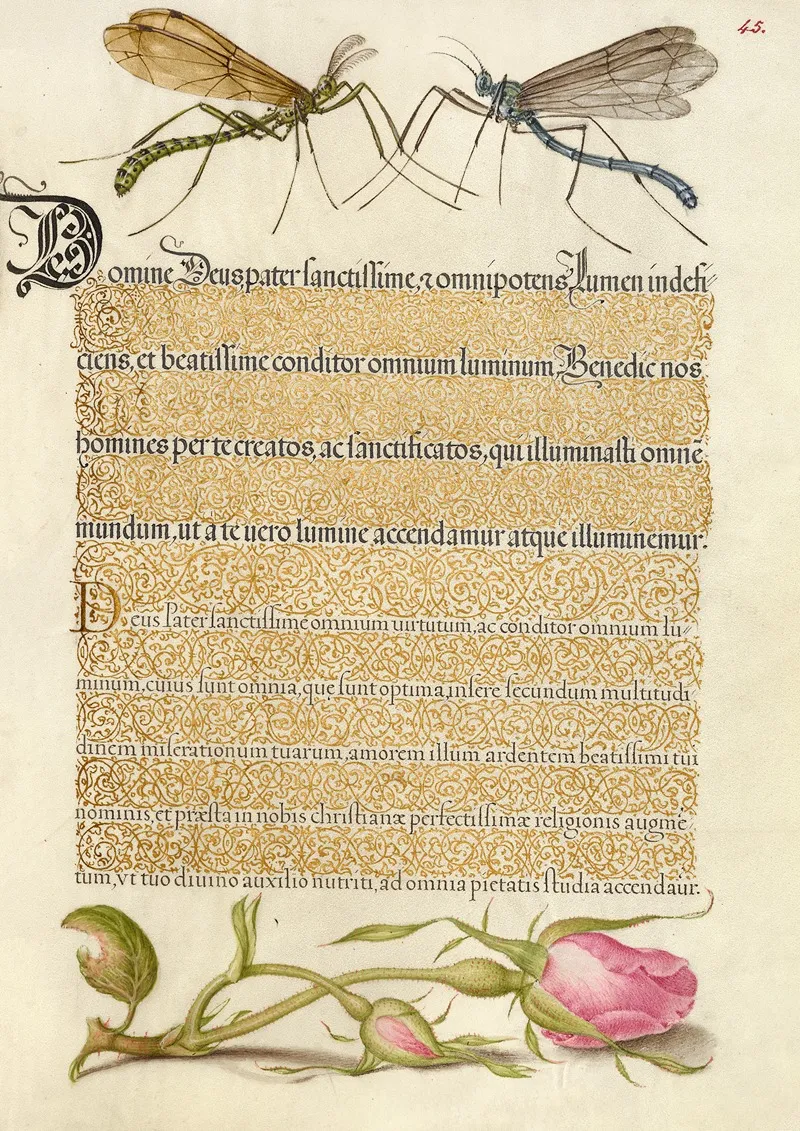 45.
Domine Deus pater sanctissime, ⁊ omnipotens Lumen indefi⸗
ciens, et beatissime conditor omnium luminum, Benedic nos
homines per te creatos, ac sanctificatos, qui illuminasti omnē
mundum, ut a te uero lumine accendamur atque illuminemur.
Deus Pater sanctissime omnium uirtutum, ac conditor omnium lu⸗
minum, cuius sunt omnia, que sunt optima, insere secundum multitudi
dinem miserationum tuarum, amorem illum ardentem beatissimi tui
nominis, et præsta in nobis christianæ perfectissimæ religionis augmē
tum, vt tuo diuino auxilio nutriti, ad omnia pietatis studia accendaūr.